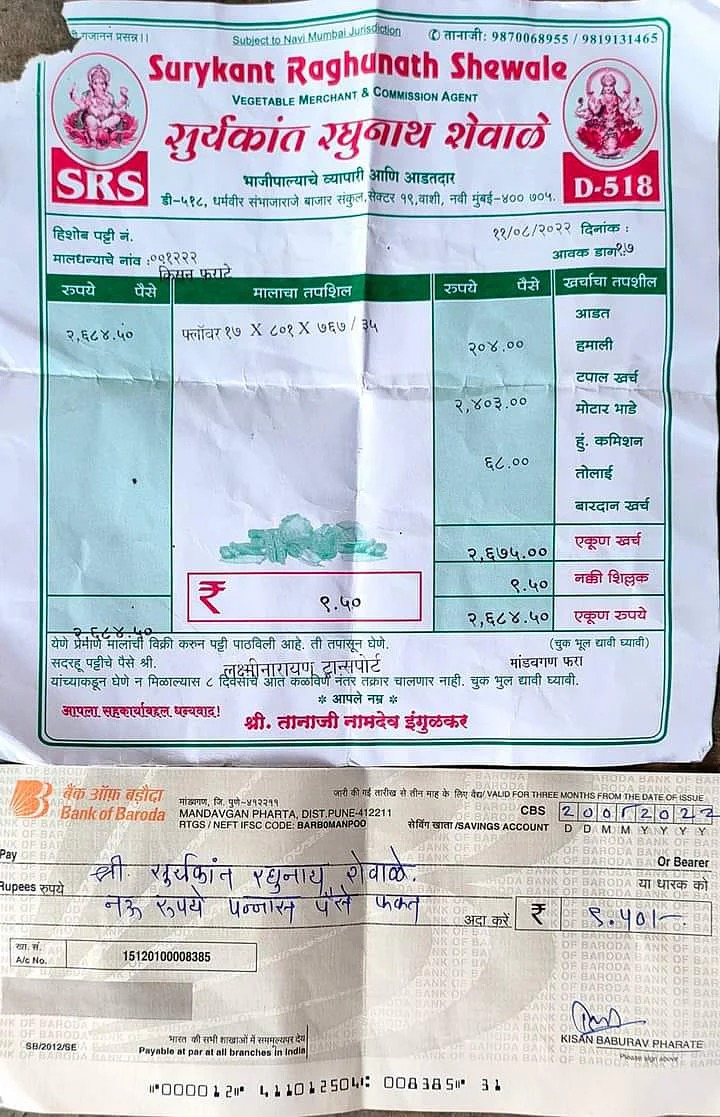 ी गजानन प्रसन्न।।
Subject to Navi Mumbai Jurisdiction
✆ तानाजी: 9870068955 / 9819131465
Surykant Raghunath Shewale
VEGETABLE MERCHANT & COMMISSION AGENT
सुर्यकांत रघुनाथ शेवाळे
SRS
भाजीपाल्याचे व्यापारी आणि आडतदार
D-518
डी-५१८, धर्मवीर संभाजाराजे बाजार संकुल, सेक्टर १९, वाशी, नवी मुंबई-४०० ७०५.
हिशोब पट्टी नं.
११/०८/२०२२ दिनांक :
मालधन्याचे नांव :००१२२२
आवक डाग१७
किसन फराटे
रुपये पैसे मालाचा तपशिल रुपये पैसे खर्चाचा तपशील
आडत
२,६८४.५० फ्लॉवर १७ X ८०१ X ७६७ / ३५
२०४.०० हमाली
टपाल खर्च
२,४०३.०० मोटार भाडे
हुं. कमिशन
६८.०० तोलाई
बारदान खर्च
२,६७५.०० एकूण खर्च
₹ ९.५०
९.५० नक्की शिल्लक
२,६८४.५०
२,६८४.५० एकूण रुपये
येणे प्रमाणे मालाची विक्री करुन पट्टी पाठविली आहे. ती तपासून घेणे. (चुक भूल द्यावी घ्यावी)
सदरहू पट्टीचे पैसे श्री. लक्ष्मीनारायण ट्रान्सपोर्ट मांडवगण फरा
यांच्याकडून घेणे न मिळाल्यास ८ दिवसाचे आत कळविणे नंतर तक्रार चालणार नाही. चुक भुल द्यावी घ्यावी.
* आपले नम्र *
आपला सहकार्याबद्दल धन्यवाद!
श्री. तानाजी नामदेव इंगुळकर
बैंक ऑफ़ बड़ौदा
Bank of Baroda
मांडवगण, जि. पुणे-४१२२११
MANDAVGAN PHARTA, DIST.PUNE-412211
RTGS / NEFT IFSC CODE: BARB0MANPOO
जारी की गई तारीख से तीन माह के लिए वैध/ VALID FOR THREE MONTHS FROM THE DATE OF ISSUE
CBS
सेविंग खाता /SAVINGS ACCOUNT
D D M M Y Y Y Y
Pay श्री. सुर्यकांत रघुनाथ शेवाळे.
Or Bearer
या धारक को
Rupees रुपये नऊ रुपये पन्नास पैसे फक्त
अदा करें ₹ ९.५०/-
खा. सं.
A/c No. 15120100008385
KISAN BABURAV PHARATE
Please sign above
भारत की सभी शाखाओं में सममूल्यपर देय
SB/2012/SE
Payable at par at all branches in India
⑈000012⑈ 411012504⑆ 008385⑈ 31